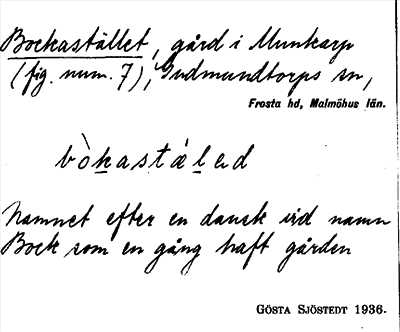 Bockastället, gård i Munkarp
(fig. num. 7), Gudmundtorps sn,
Frosta hd, Malmöhus län.
bòkastáled
Namnet efter en dansk vid namn
Bock som en gång haft gården
GÖSTA SJÖSTEDT 1936.